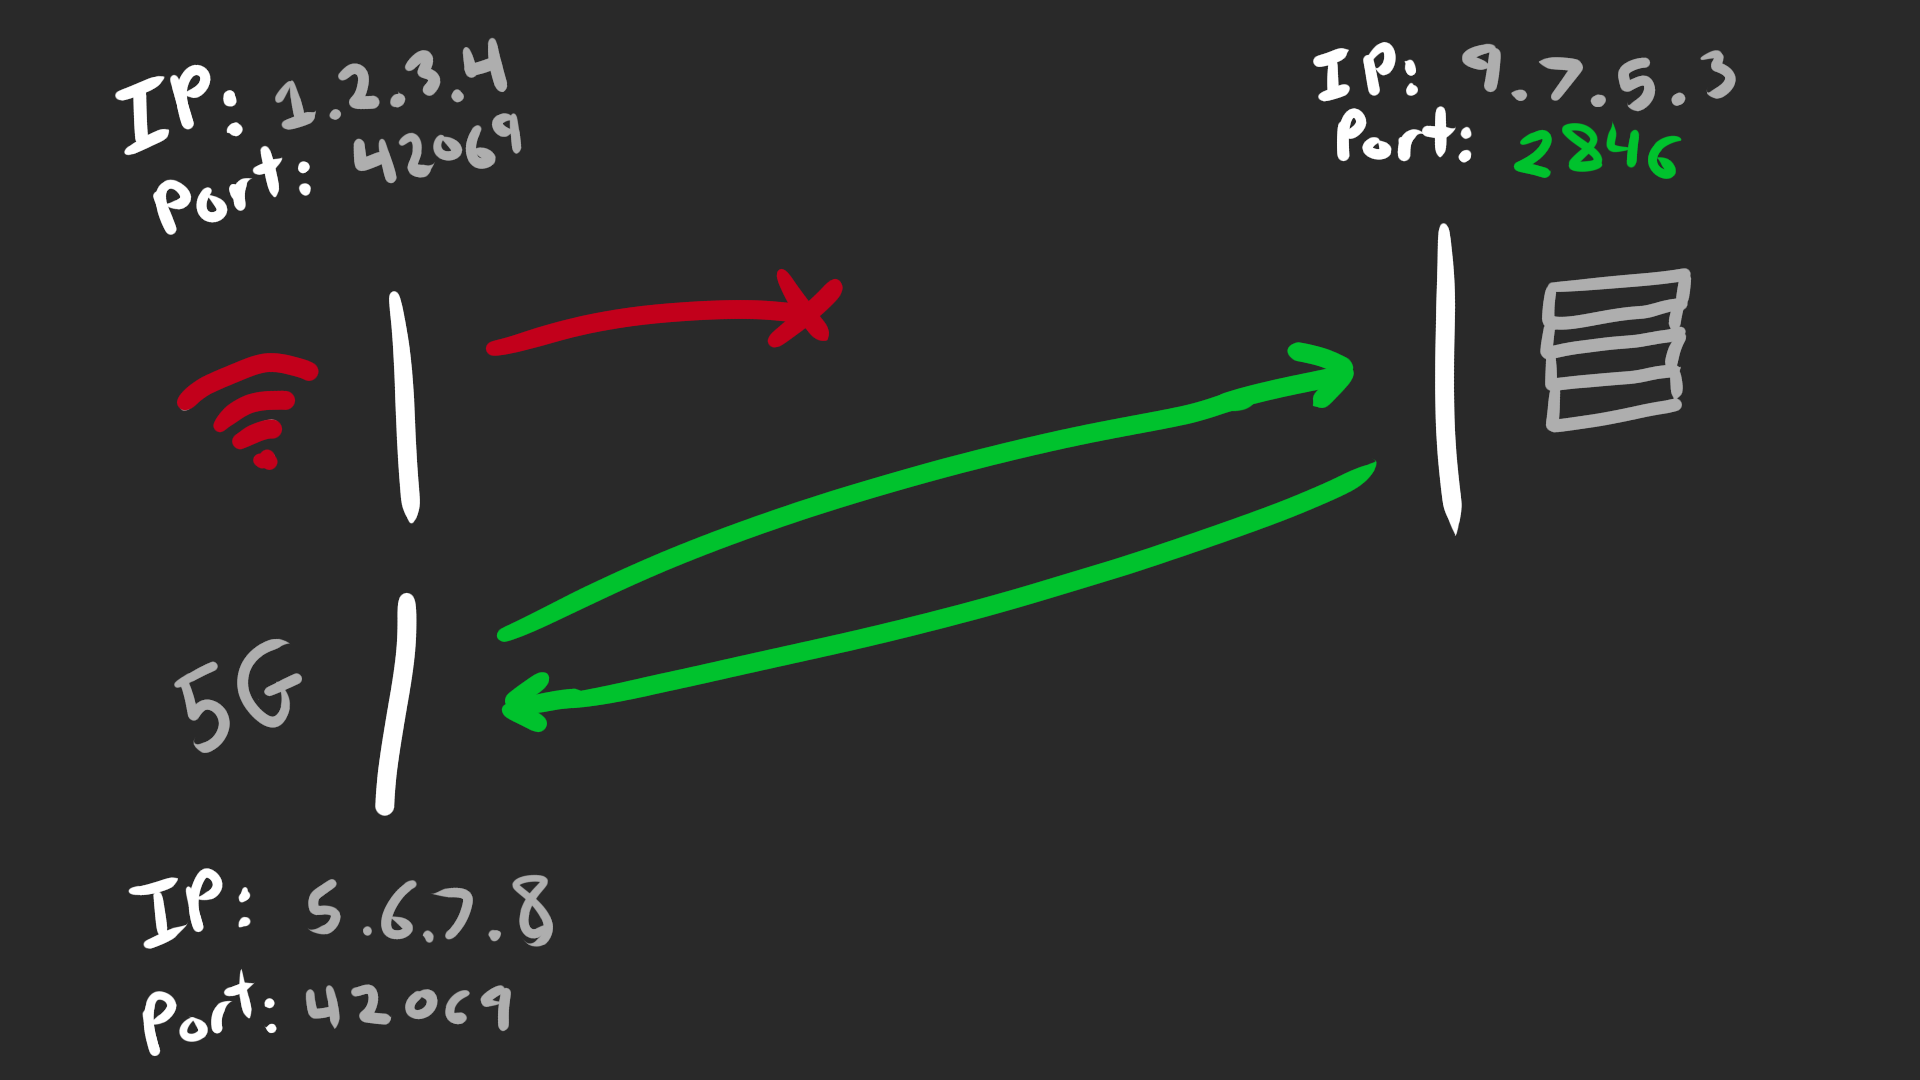 IP: 1.2.3.4
Port: 42069
IP: 9.7.5.3
Port: 2846
5G
IP: 5.6.7.8
Port: 42069